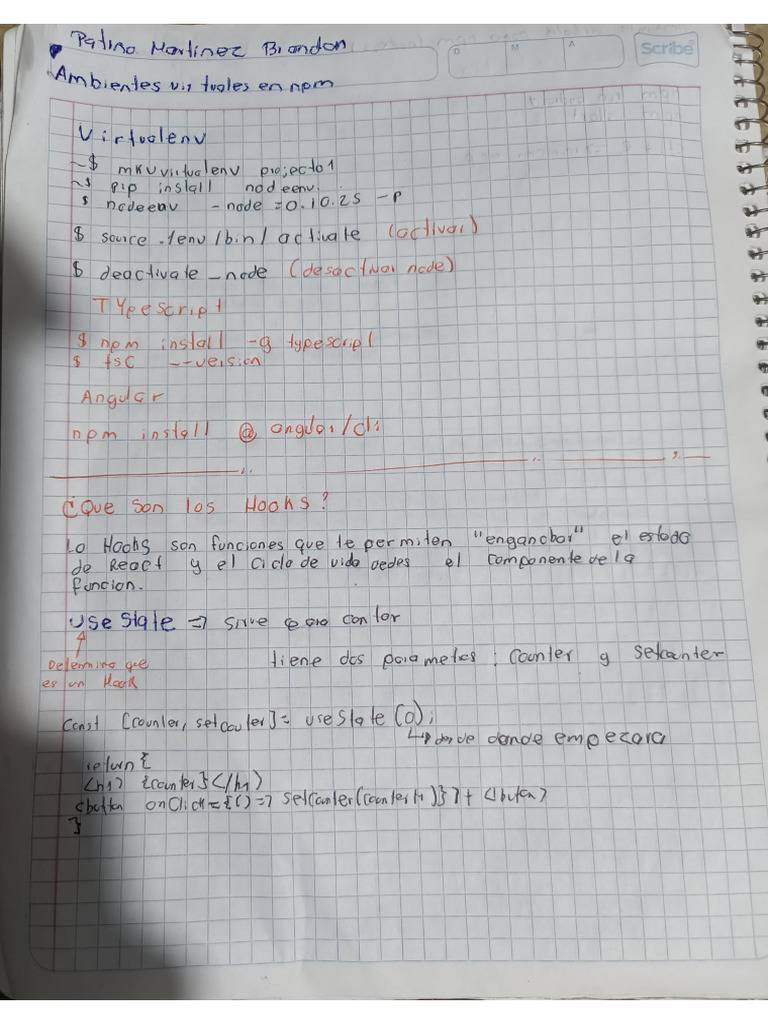 Patino Martinez Brandon
D M A
Scribe
Ambientes virtuales en npm
Virtualenv
~$ mkvvirtualenv projecto1
~$ pip install nodeenv.
$ nodeenv -node = 0.10.25 -P
$ source ./env/bin/ activate (activar)
$ deactivate_node (desactivar node)
TYpescript
$ npm install -g typescript
$ tsc --version
Angular
npm install @ angular/cli
¿Que son los Hooks?
Lo Hooks son funciones que te permiten "enganchar" el estado
de React y el ciclo de vida dedes el componente de la
funcion.
Use State => sirve para contar
Determina que
es un Hook
tiene dos parametros: counter y setcounter
Const [counter, setcouter] = useState(0);
↳ donde donde empezara
return{
<h1> {counter}</h1>
<button onClick={()=> setCounter(counter+1)}>+ </buton>
}